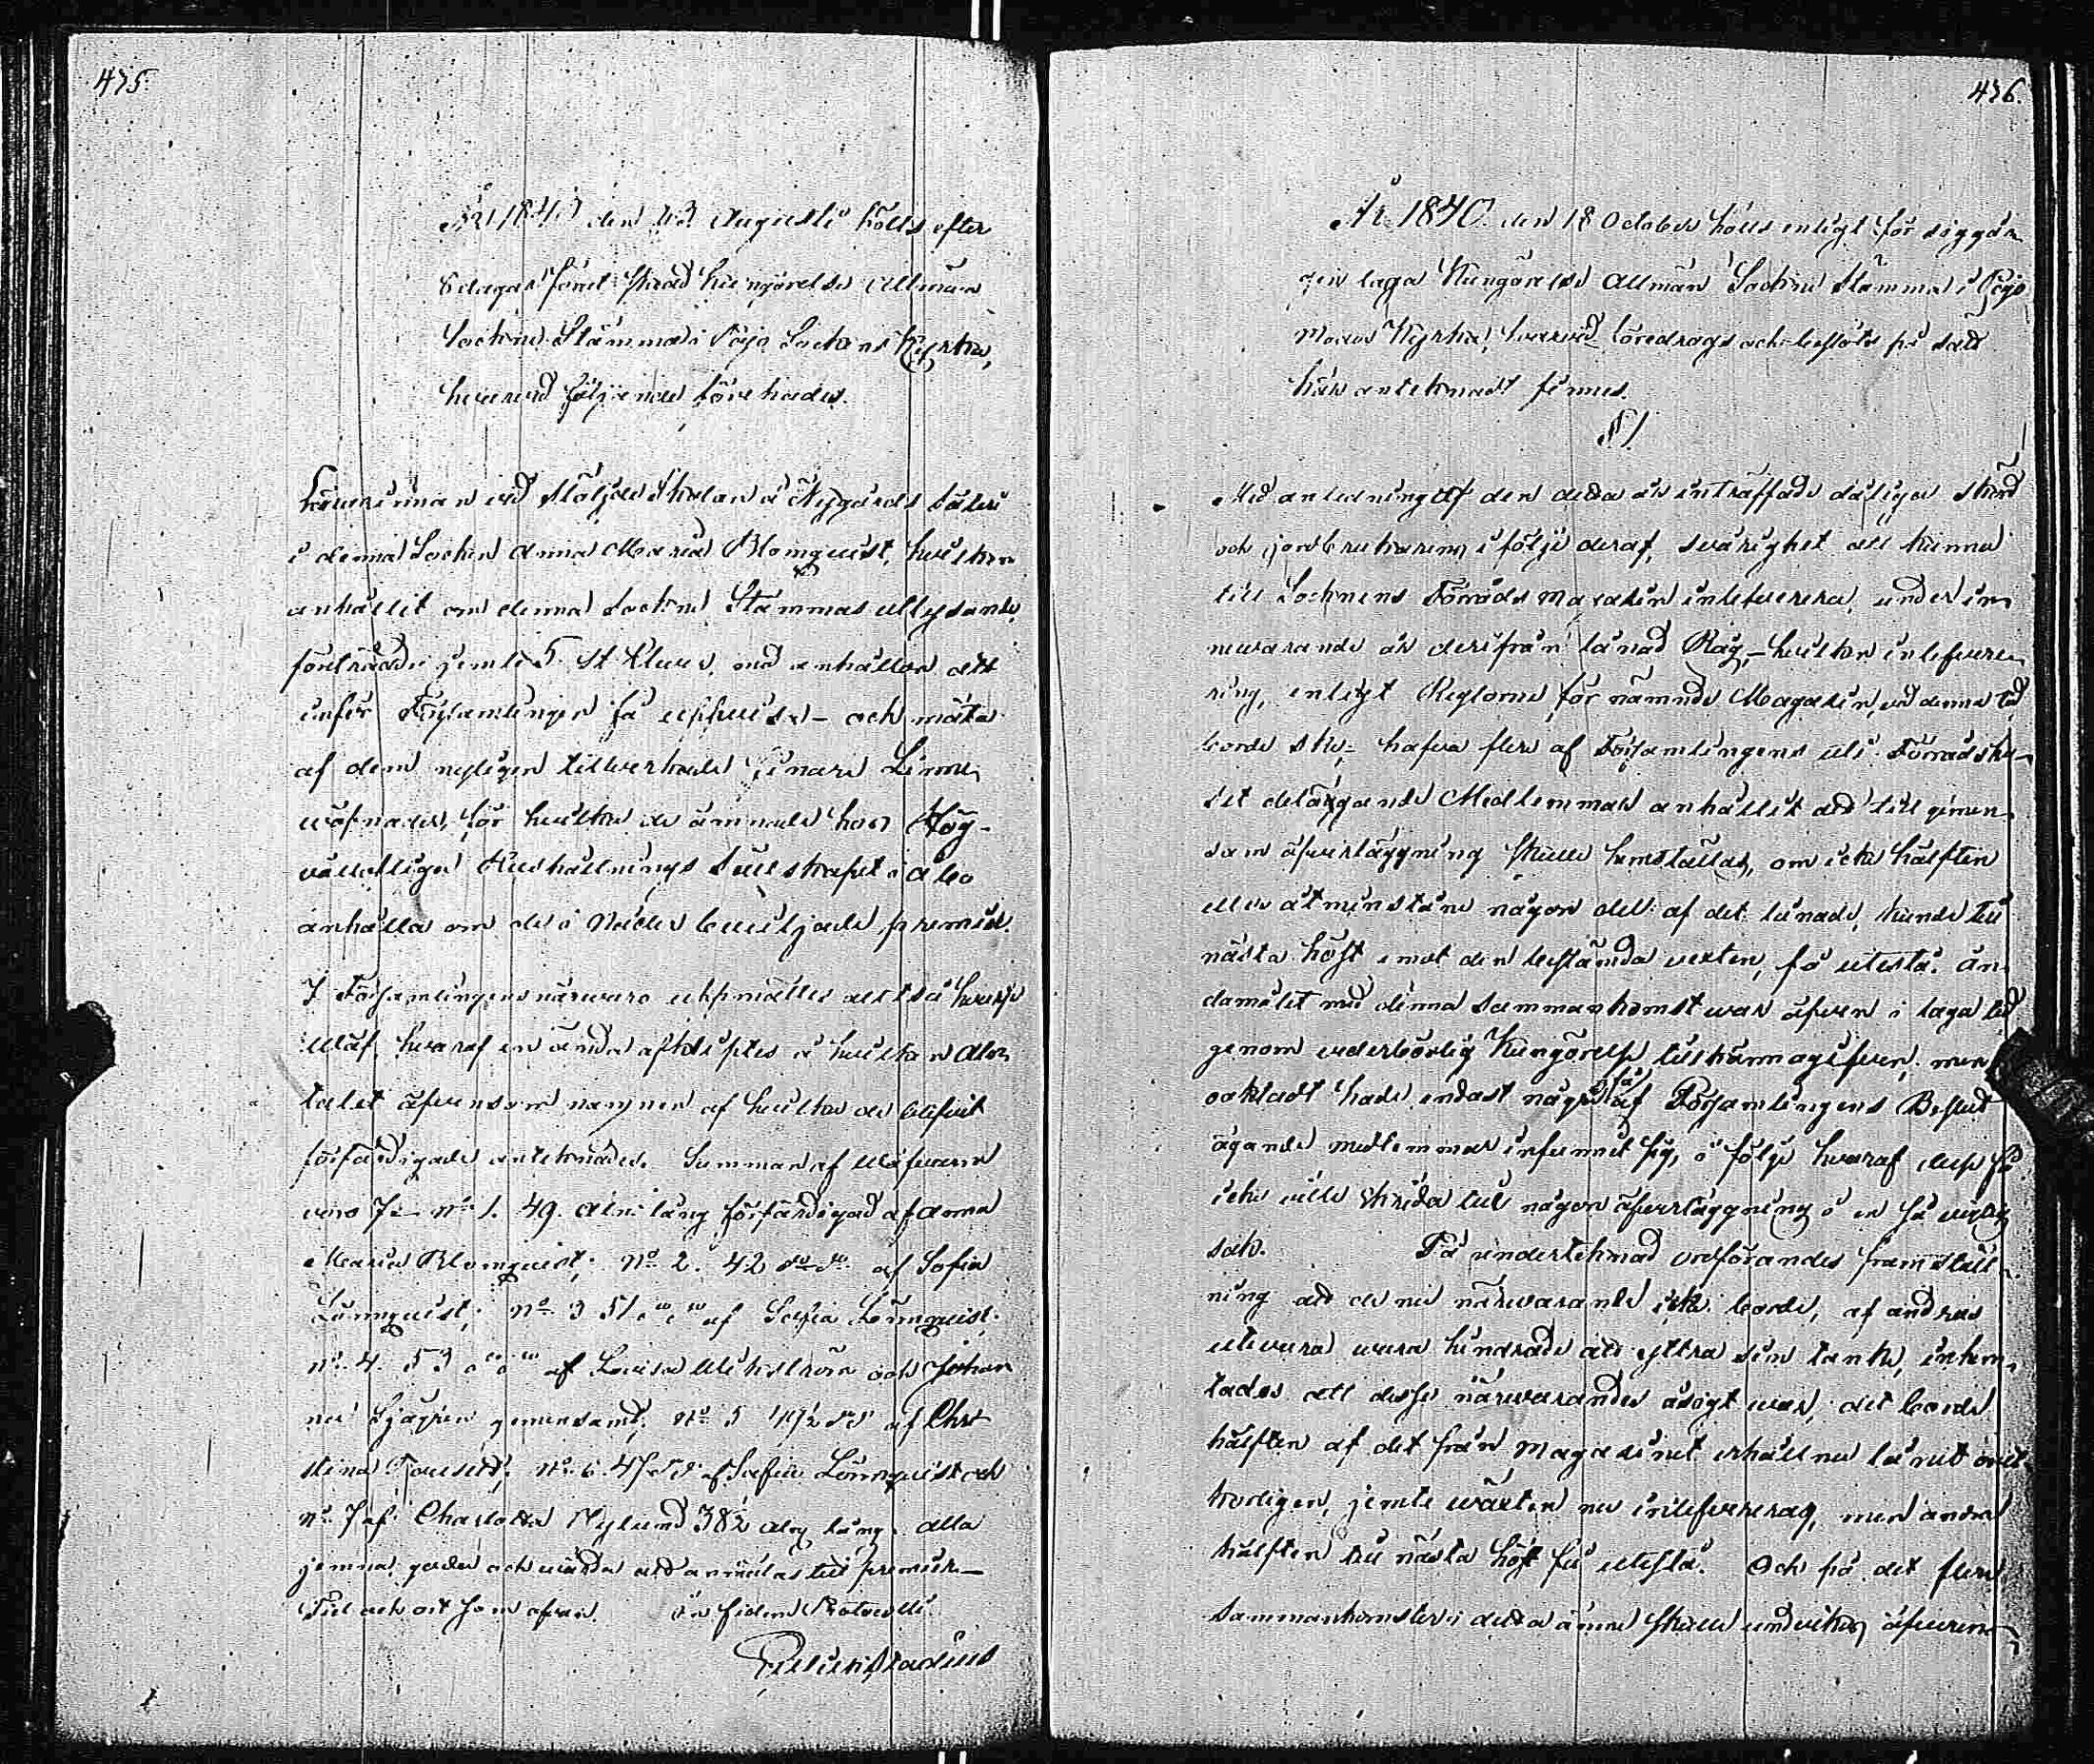 475.
År 1840 den 23 Augusti hölls efter
8 dagar förut skedd kungörelse allmän
Sockne Stämma i Pojo Sockens Kyrka,
hvarvid följande förehades.
Lärarinnan vid Slöjde Skolan å Nygårds Säteri
i denna Sockn Anna Maria Blomquist, hvilken
anhållit om denna Sockne Stämmas utlysande,
företrädde jemte 5 st Elever, med anhållan att
inför Församlingen få uppvisa – och mäta
af dem nyligen tillverkade finare Linne
wäfnader, för hvilka de ämnade hos Kög-
vällofliga Hushållnings Sällskapet i Åbo
anhålla om de i Nåder beviljade premier.
I Församlingens närvaro uppmättes alltså hvarje
Wäf, hvaraf en ända afklipptes å hvilken Aln
talet äfvensom namnen af hvilka de blifvit
förfärdigade antecknades. Summan af Wäfvarne
voro 7. – No 1. 49. Aln. lång förfärdigad af Anna
Maria Blomquist; No 2. 42 do do af Sofia
Lönnquist; No 3 51 do do af Sofia Lönnquist.
No. 4. 53 do do af Lovisa Wickström och Johan
na Sjögren gemensamt; No 5 49½ do do af Chri
stina ; No 6. 47 do do af Sofia Lönnquist och
No 7 af Charlotta Nylund 38½ aln lång. alla
jemna, goda och värda att anmälas till premier. –
Tid och ort som ofvan. In fidem Protocolli
476.
År 1840. den 18 October hölls enligt för siggån
gen laga Kungörelse Allmän Sockne Stämma i Pojo
Moder Kyrka, hvarvid föredrogs och beslöts på sätt
här antecknadt finnes.
§ 1
Med anledning af den detta år inträffade dåliga skörd
och jordbrukarens i följe deraf, svårighet att kunna
till Socknens Förråds Magasin inleverera, under in
nevarande år derifrån lånad Råg, – hvilken inlefvere
ring, enligt Reglorne för nämnde Magasin, vid denna tid
borde ske, – hafva flere af Församlingens uti Förrådshu-
set delägande Medlemmar anhållit att till gemen-
sam öfverläggning skulle hemställas, om icke hälften
eller åtminstone någon del af det lånade, kunde till
nästa höst emot den bestämda vexten, få utestå. Än
damålet med denna sammankomst war äfven i laga tid
genom vederbörlig Kungörelse tillkännagifven, men
oaktadt hade endast några få af Församlingens Beslut
ägande medlemmar infunnit sig, i följe hvaraf desse få
icke ville skrida till någon öfverläggning i en så vigtig
sak. På undertecknad ordförandes framställ
ning att de nu närvarande icke borde, af andras
utevaro vara hindrade att yttra sin tanke, inhem-
tades att desse närvarandes åsigt war, det borde
hälften af det från Magasinet erhållne lånet ovil-
korligen, jemte wäxten nu inlefvereras, men andra
hälften till nästa höst få utestå. Och på det flere
sammankomster i detta ämne skulle undvikas öfverens